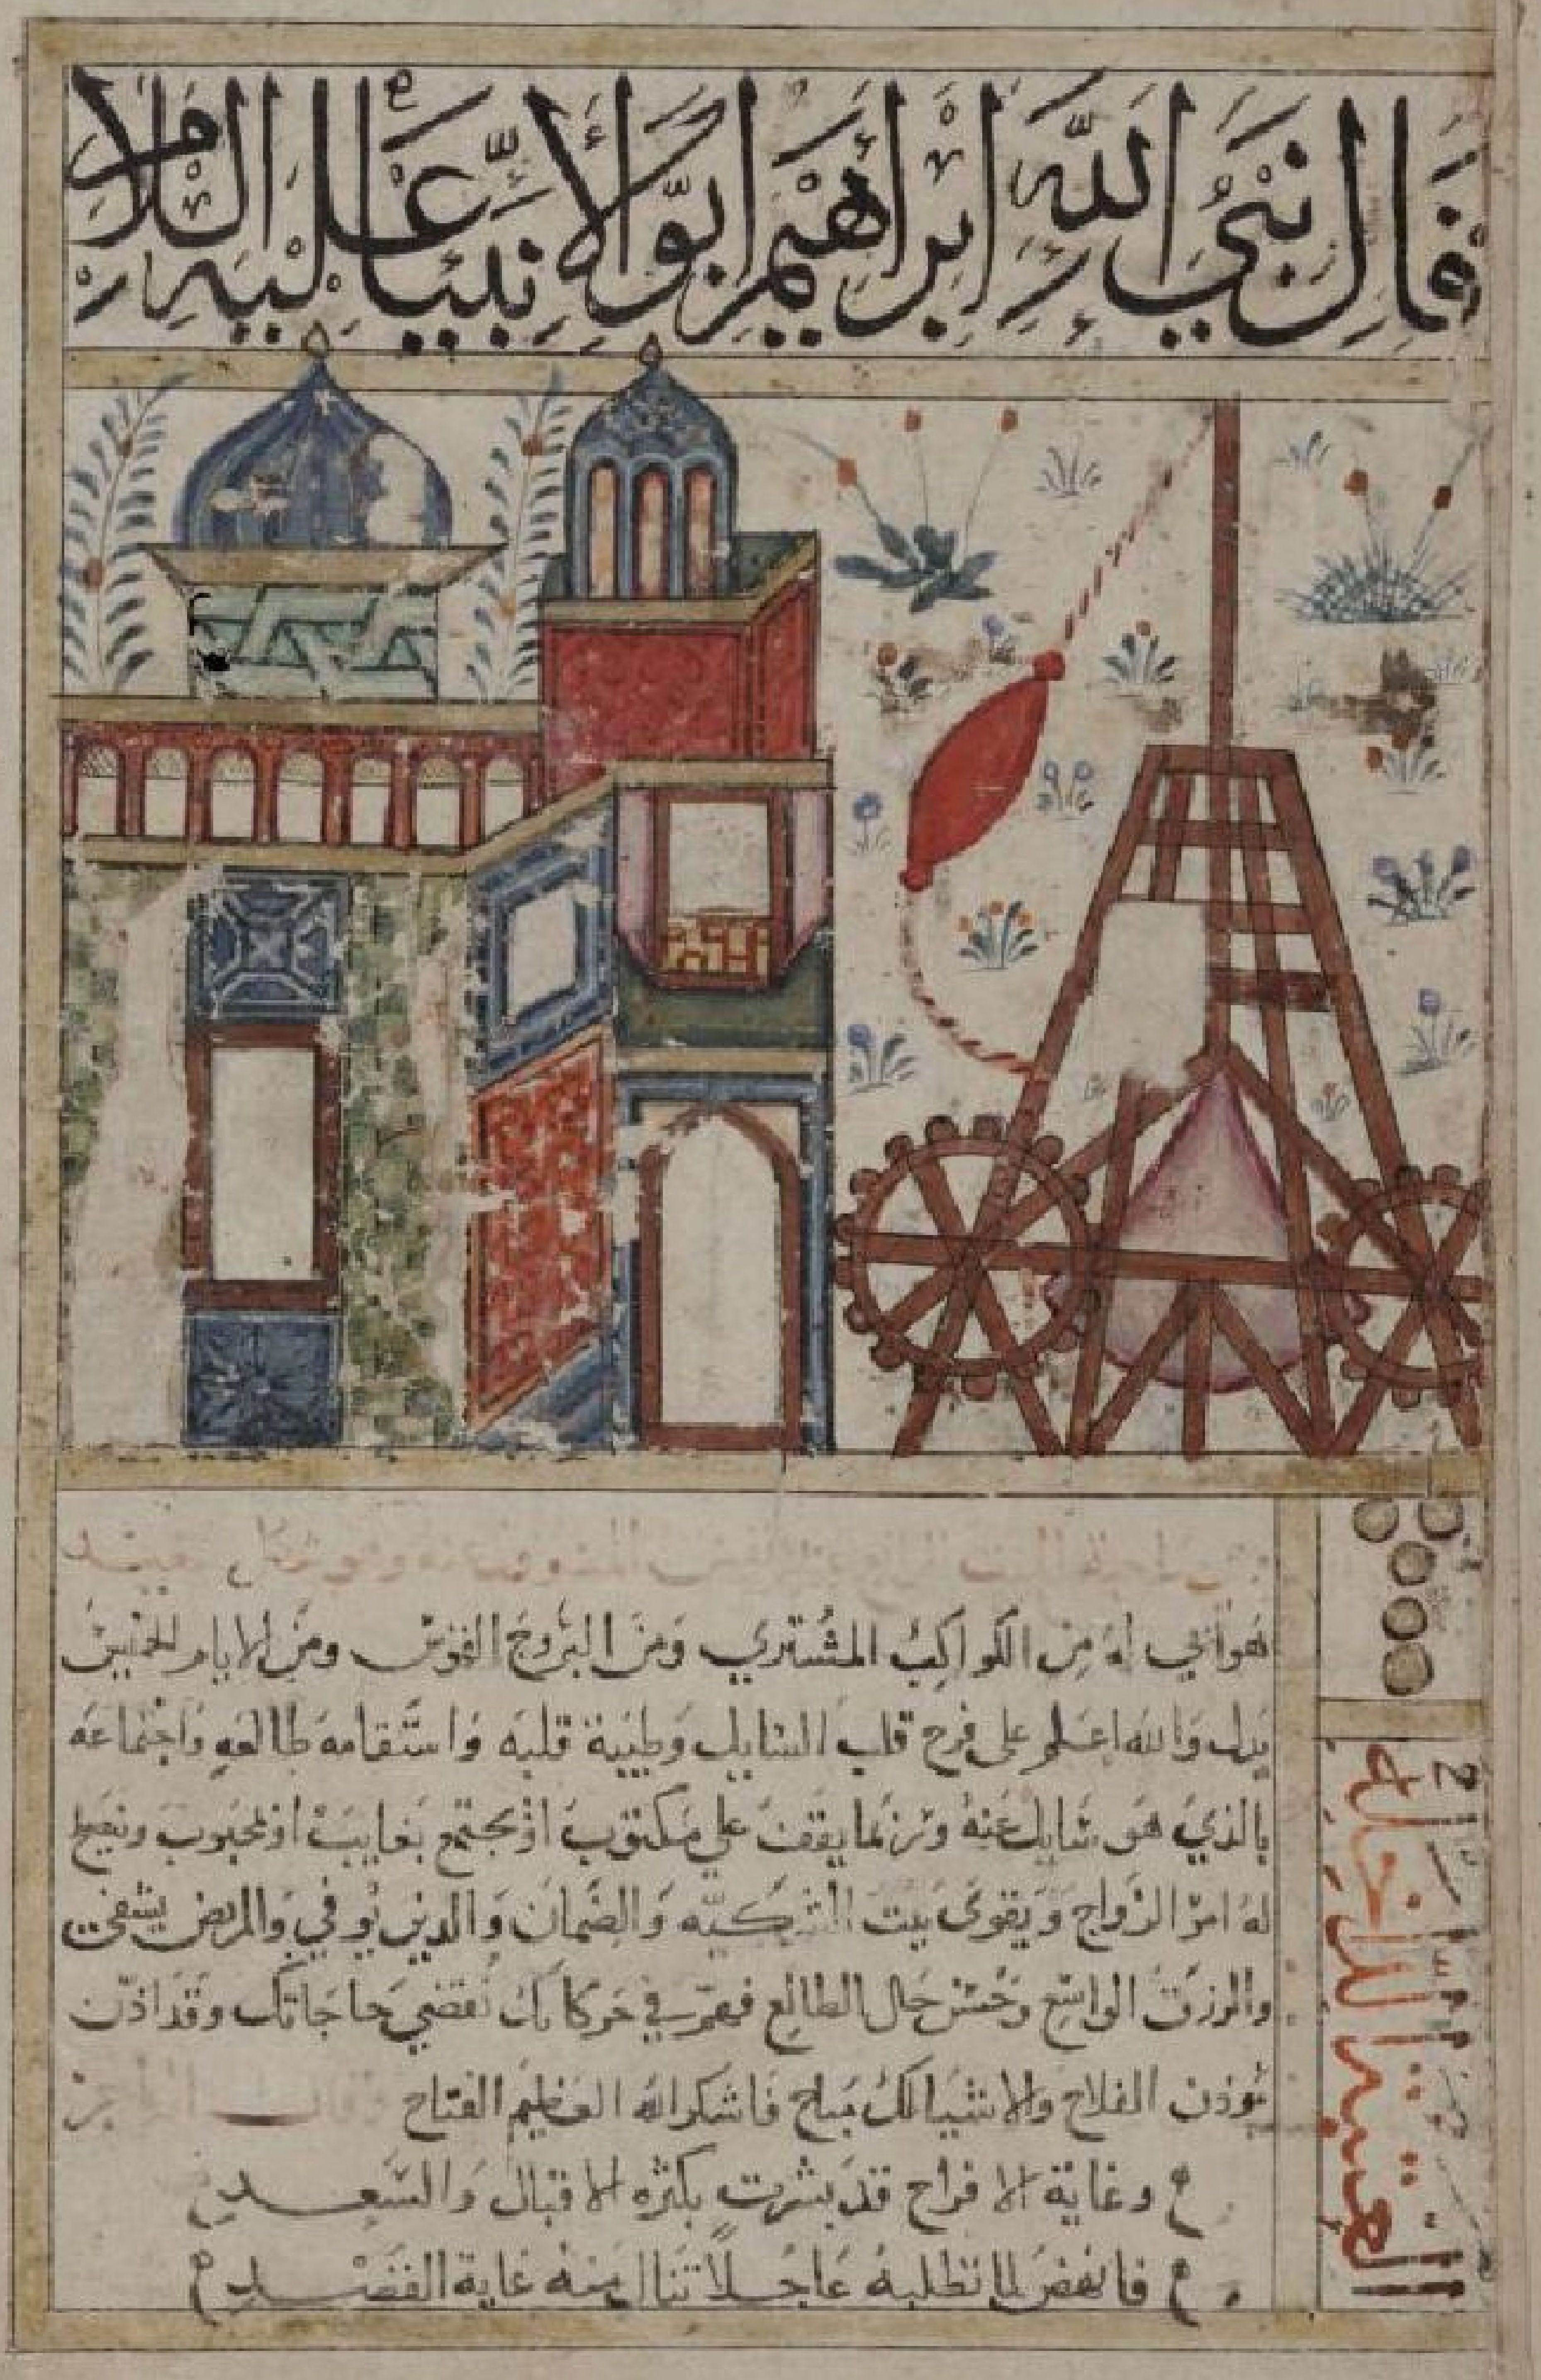 قَالَ نَبِيُّ اللَّهِ إِبْرَاهِيمُ أَبُو الأَنْبِيَاءِ عَلَيْهِ السَّلَامُ
هواني له من الكواكب المشتري ومن البروج القوس ومن الايام الخميس
يدل والله اعلم على فرح قلب السايل وطيبة قلبه واستقامة طالعه واجتماعه
بالذي هو سايل عنه وربما يقف علي مكتوب او يجتمع بغايب او محبوب ويصلح
له امر الزواج ويقوى بيت الشركة والضمان والدين يوفي والمريض يشفى
والرزق الواسع وحسن حال الطالع فهم في حركاتك تقضي حاجاتك وقد اذن
مؤذن الفلاح والاشيا لك مباح فاشكر الله العظيم الفتاح
وغاية الافراح قد بشرت بكثره الاقبال والسعد
فانهض لما تطلبه عاجلاً تنال منه غاية القصد
العتبة الداخلة